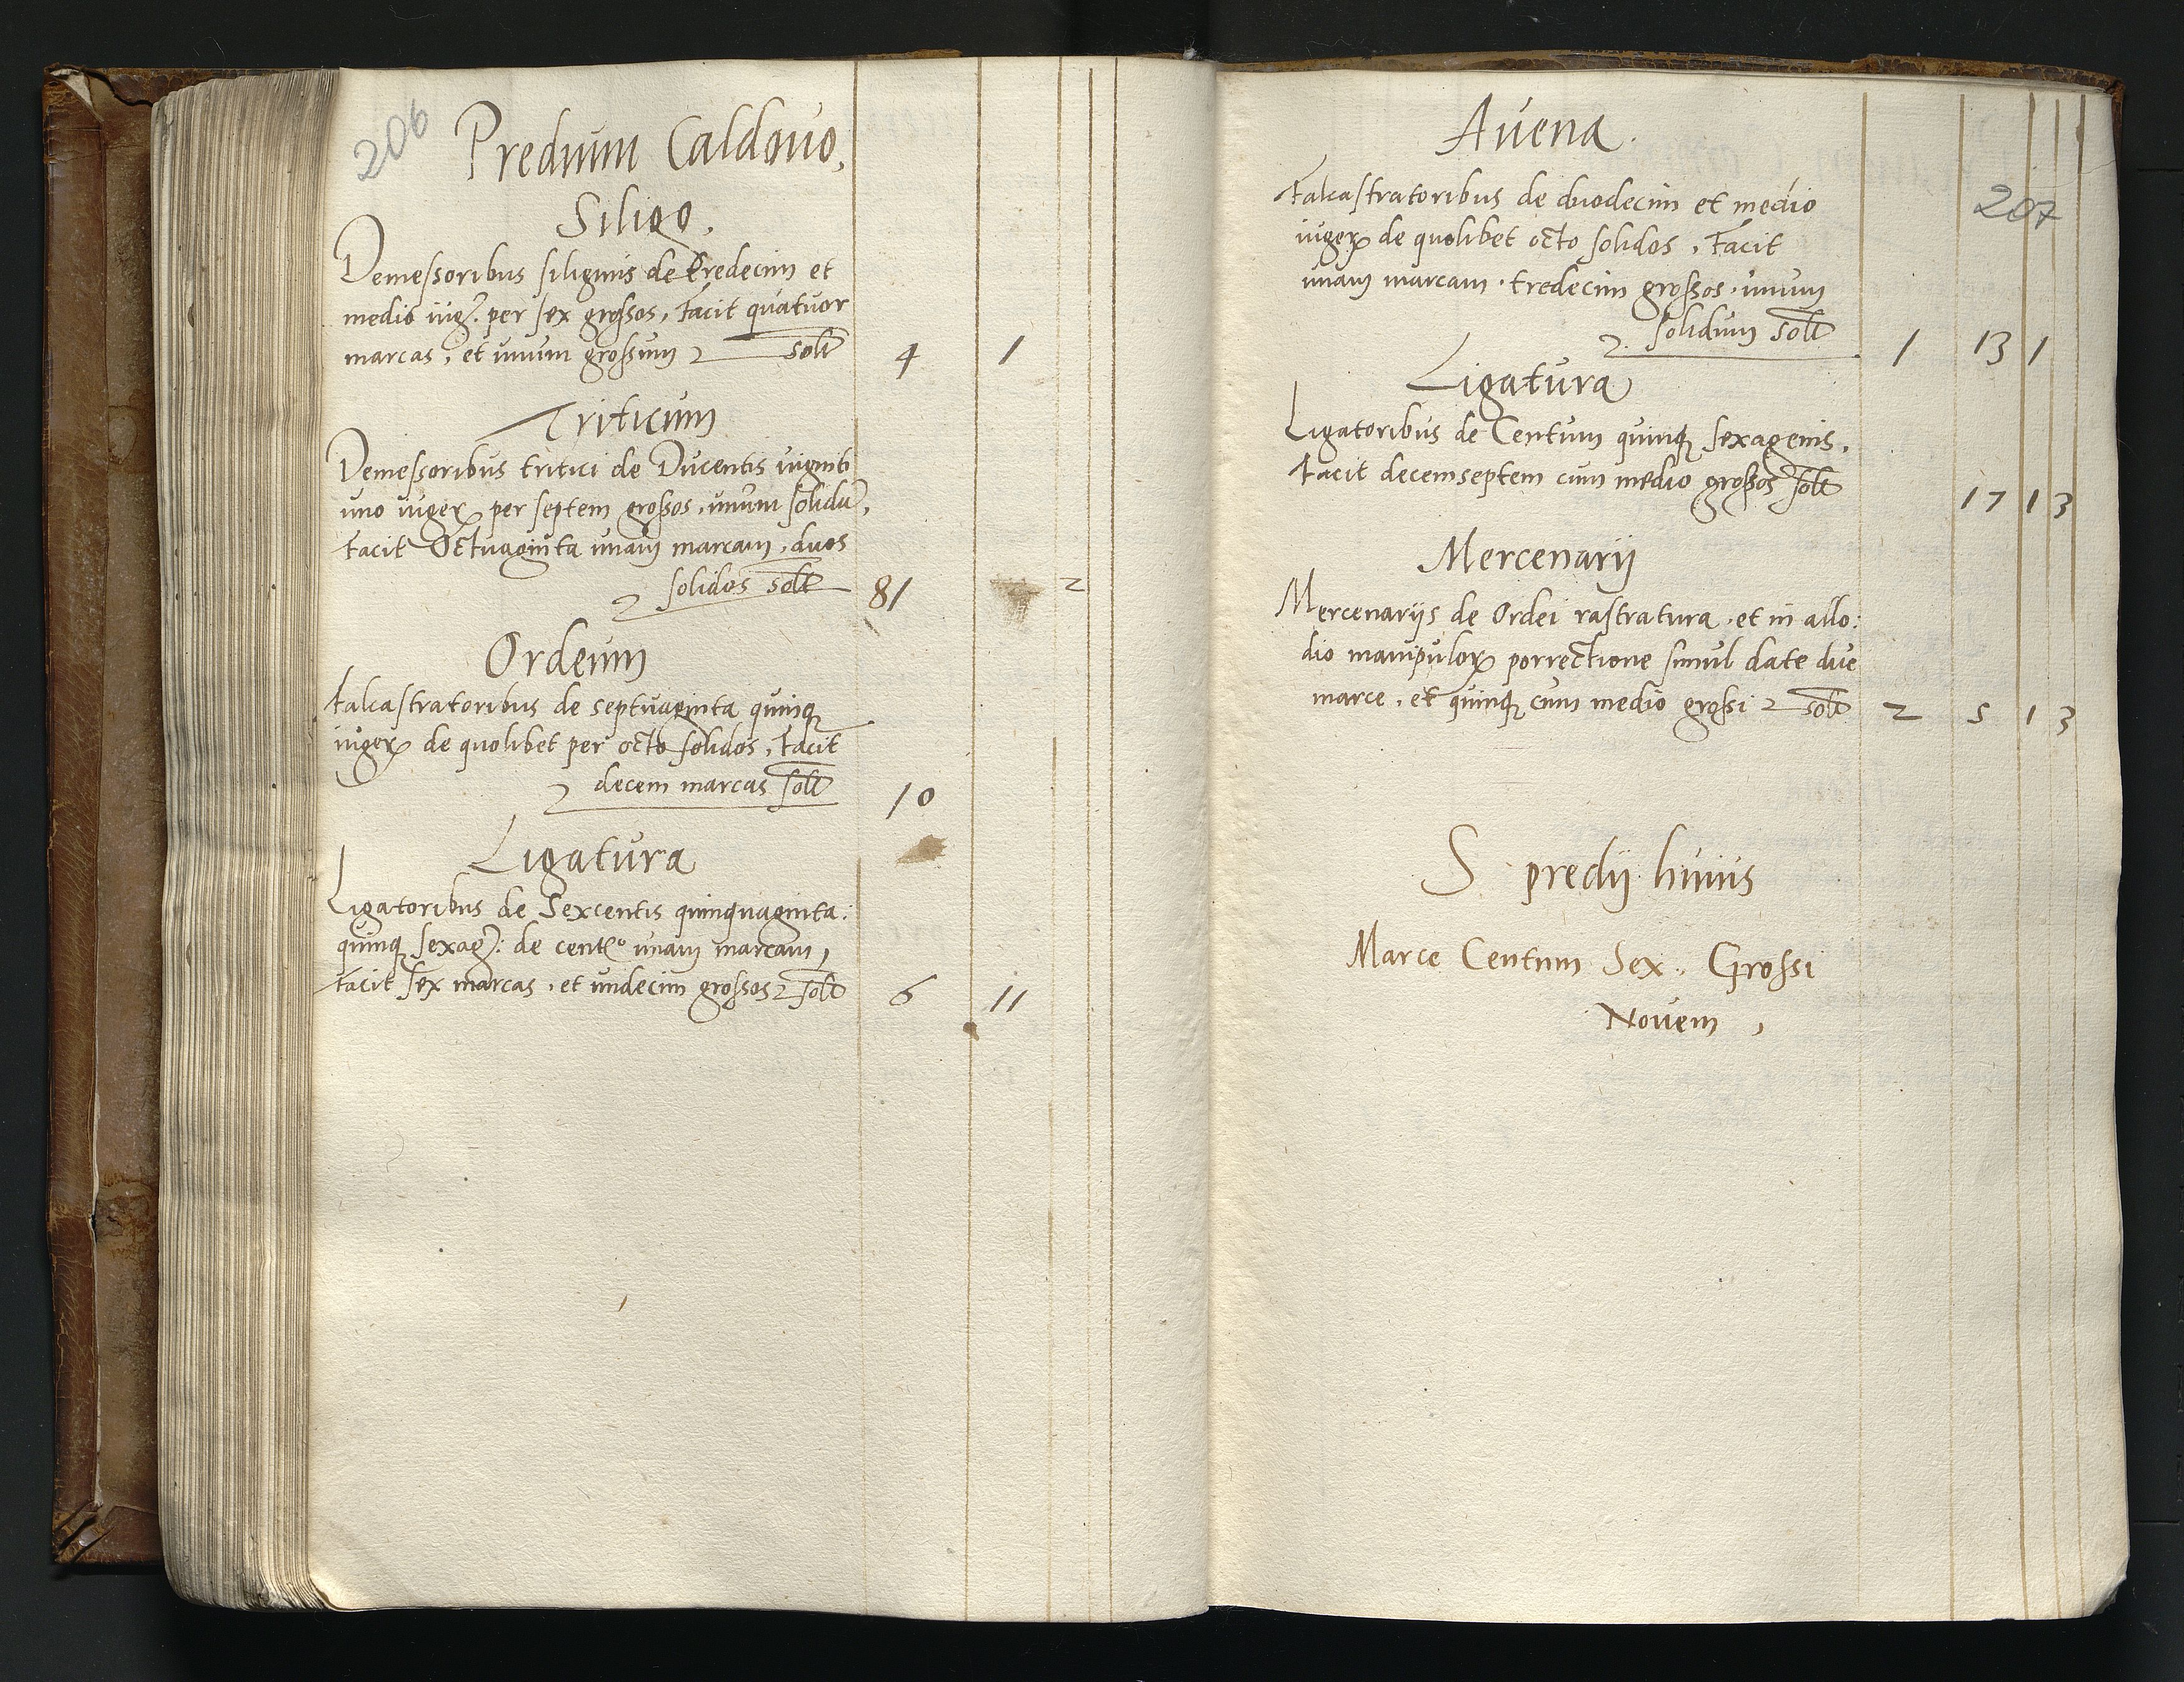 206
Predium Caldouo,
Siligo.
Demessoribus siliginis de tredecim et
medio iug. per sex grossos, facit quatuor
marcas, et unum grossum solt 4 1
Triticum
Demessoribus tritici de Ducentis viginti
uno iuger per septem grossos, unum solidu,
facit Octuaginta unam marcam, duos
solidos solt 81 2
Ordeum
falcastratoribus de septuaginta quinq
iuger de quolibet per octo solidos, facit
decem marcas solt 10
Ligatura
Ligatoribus de Sexcentis quinquaginta:
quinq sexag: de cento unam marcam,
facit sex marcas, et undecim grossos solt 6 11
207
Auena.
falcastratoribus de duodecim et medio
iuger de quolibet octo solidos, facit
unam marcam. tredecim grossos. unum
solidum solt 1 13 1
Ligatura
Ligatoribus de Centum quinq sexagenis.
facit decemseptem cum medio grossos solt 17 1 3
Mercenarij
Mercenarijs de Ordei rastratura, et in allo:
dio manipulor porrectione simul date due
marce, et quinq cum medio grossi solt 2 5 1 3
S predij huius
Marce Centum Sex. Grossi
Novem,